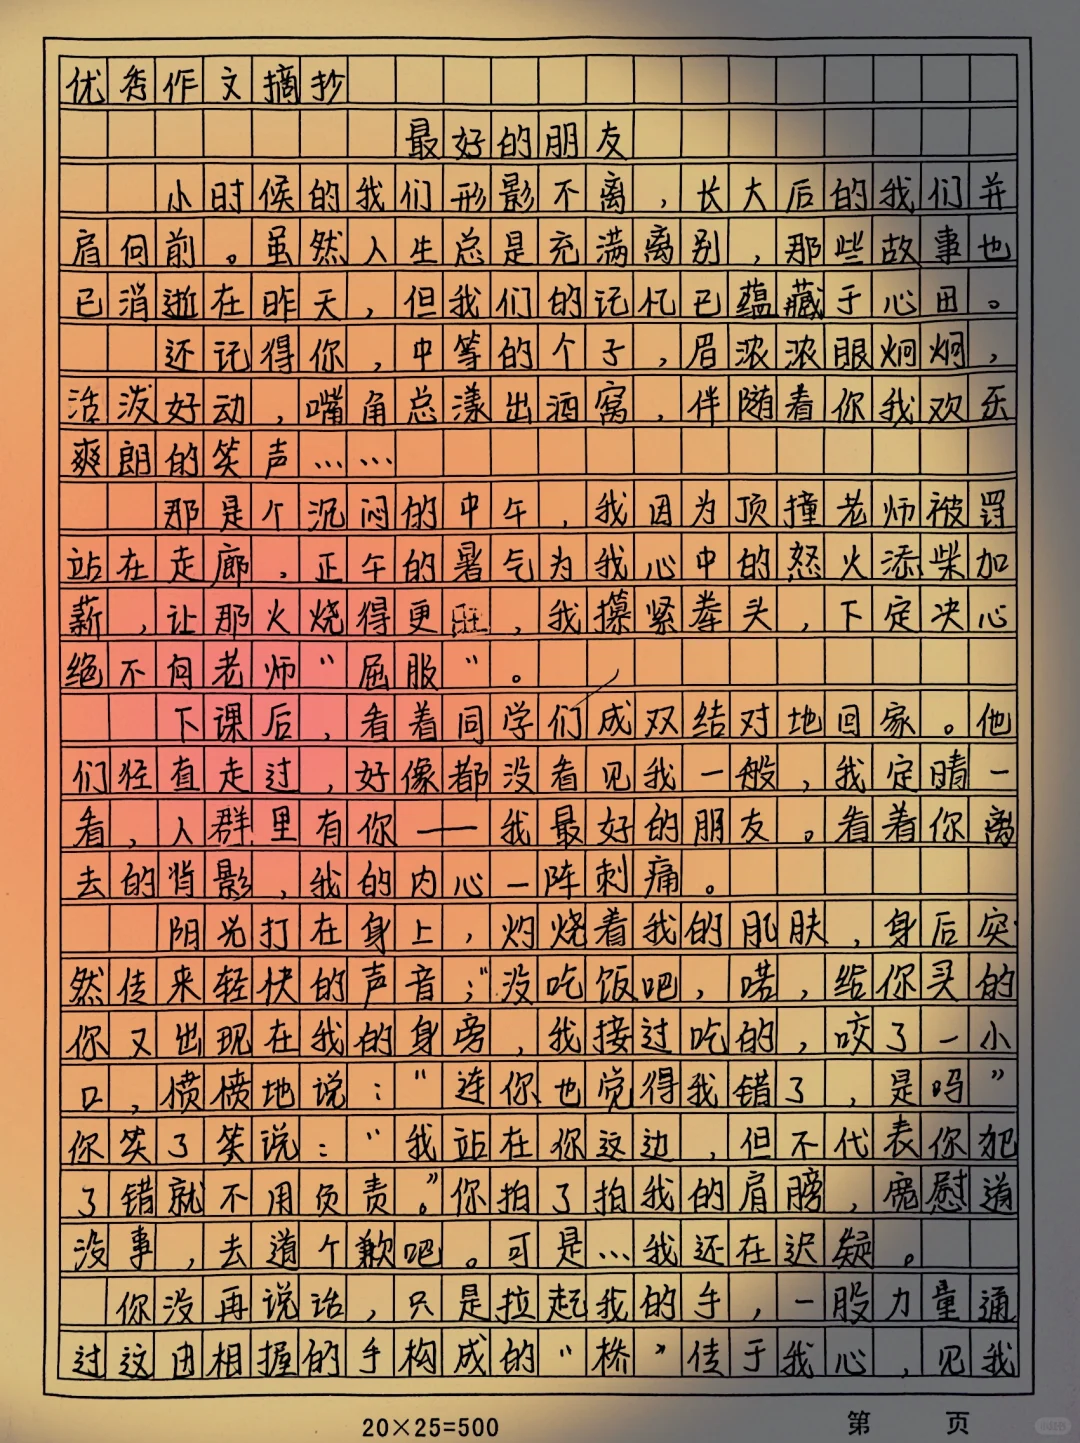 优秀作文摘抄
最好的朋友
小时候的我们形影不离，长大后的我们并
肩向前。虽然人生总是充满离别，那些故事也
已消逝在昨天，但我们的记忆已蕴藏于心田。
还记得你，中等的个子，眉浓浓眼炯炯，
活泼好动，嘴角总漾出酒窝，伴随着你我欢乐
爽朗的笑声……
那是个沉闷的中午，我因为顶撞老师被罚
站在走廊，正午的暑气为我心中的怒火添柴加
薪，让那火烧得更旺，我攥紧拳头，下定决心
绝不向老师“屈服”。
下课后，看着同学们成双结对地回家。他
们径直走过，好像都没看见我一般，我定睛一
看，人群里有你——我最好的朋友。看着你离
去的背影，我的内心一阵刺痛。
阳光打在身上，灼烧着我的肌肤，身后突
然传来轻快的声音；“没吃饭吧，喏，给你买的
你又出现在我的身旁，我接过吃的，咬了一小
口，愤愤地说：“连你也觉得我错了，是吗”
你笑了笑说：“我站在你这边，但不代表你犯
了错就不用负责。”你拍了拍我的肩膀，宽慰道
没事，去道个歉吧。可是…我还在迟疑。
你没再说话，只是拉起我的手，一股力量通
过这由相握的手构成的“桥”传于我心，见我
20×25=500
第 页
小红书